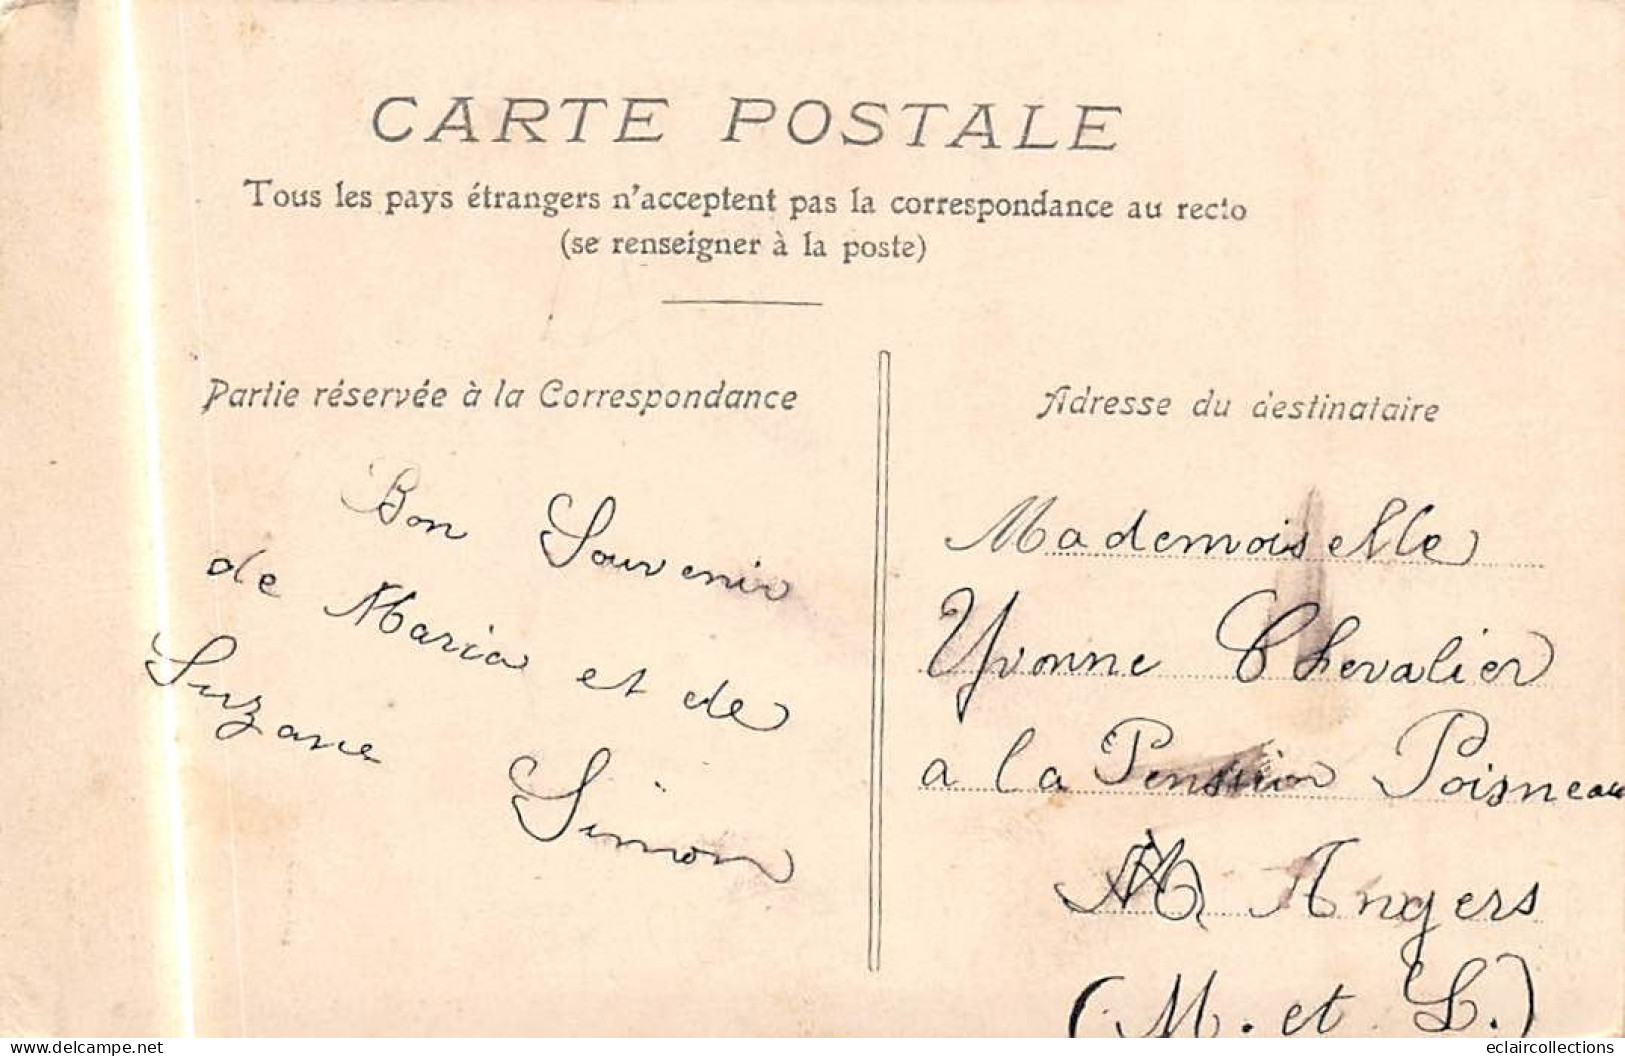 CARTE POSTALE
Tous les pays étrangers n'acceptent pas la correspondance au recto
(se renseigner à la poste)
Partie réservée à la Correspondance
Bon Souvenir
de Maria et de
Suzane Simon
Adresse du destinataire
Mademoiselle
Yvonne Chevalier
a la Pension Poisneau
Angers
(M. et L.)
delcampe.net
eclaircollections